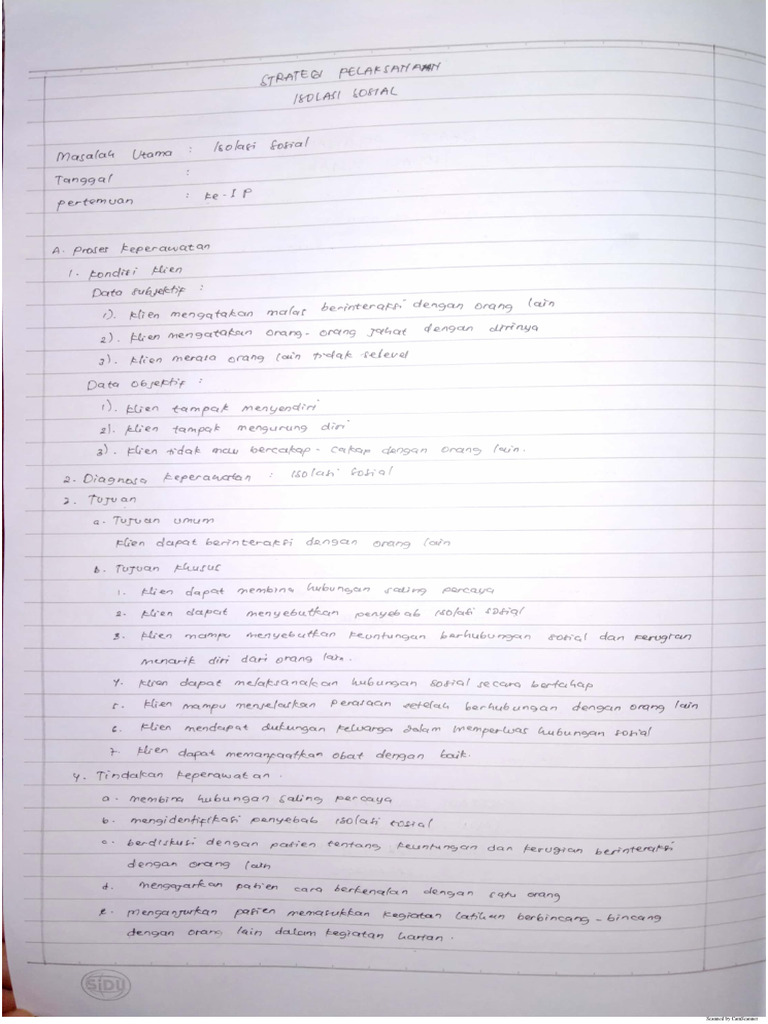 STRATEGI PELAKSANAAN
ISOLASI SOSIAL
Masalah Utama : Isolasi Sosial
Tanggal :
pertemuan : ke-I P
A. Proses keperawatan
1. kondisi klien
Data subjektif :
1). klien mengatakan malas berinteraksi dengan orang lain
2). klien mengatakan orang-orang jahat dengan dirinya
3). klien merasa orang lain tidak selevel
Data objektif :
1). klien tampak menyendiri
2). klien tampak mengurung diri
3). klien tidak mau bercakap-cakap dengan orang lain.
2. Diagnosa keperawatan : isolasi sosial
3. Tujuan
a. Tujuan umum
klien dapat berinteraksi dengan orang lain
b. Tujuan khusus
1. klien dapat membina hubungan saling percaya
2. klien dapat menyebutkan penyebab isolasi sosial
3. klien mampu menyebutkan keuntungan berhubungan sosial dan kerugian
menarik diri dari orang lain.
4. klien dapat melaksanakan hubungan sosial secara bertahap
5. klien mampu menjelaskan perasaan setelah berhubungan dengan orang lain
6. klien mendapat dukungan keluarga dalam memperluas hubungan sosial
7. klien dapat memanfaatkan obat dengan baik.
4. Tindakan keperawatan.
a. membina hubungan saling percaya
b. mengidentifikasi penyebab isolasi sosial
c. berdiskusi dengan patien tentang keuntungan dan kerugian berinteraksi
dengan orang lain
d. mengajarkan patien cara berkenalan dengan satu orang
e. menganjurkan pasien memasukkan kegiatan latihan berbincang-bincang
dengan orang lain dalam kegiatan harian.
SiDU
Scanned by CamScanner